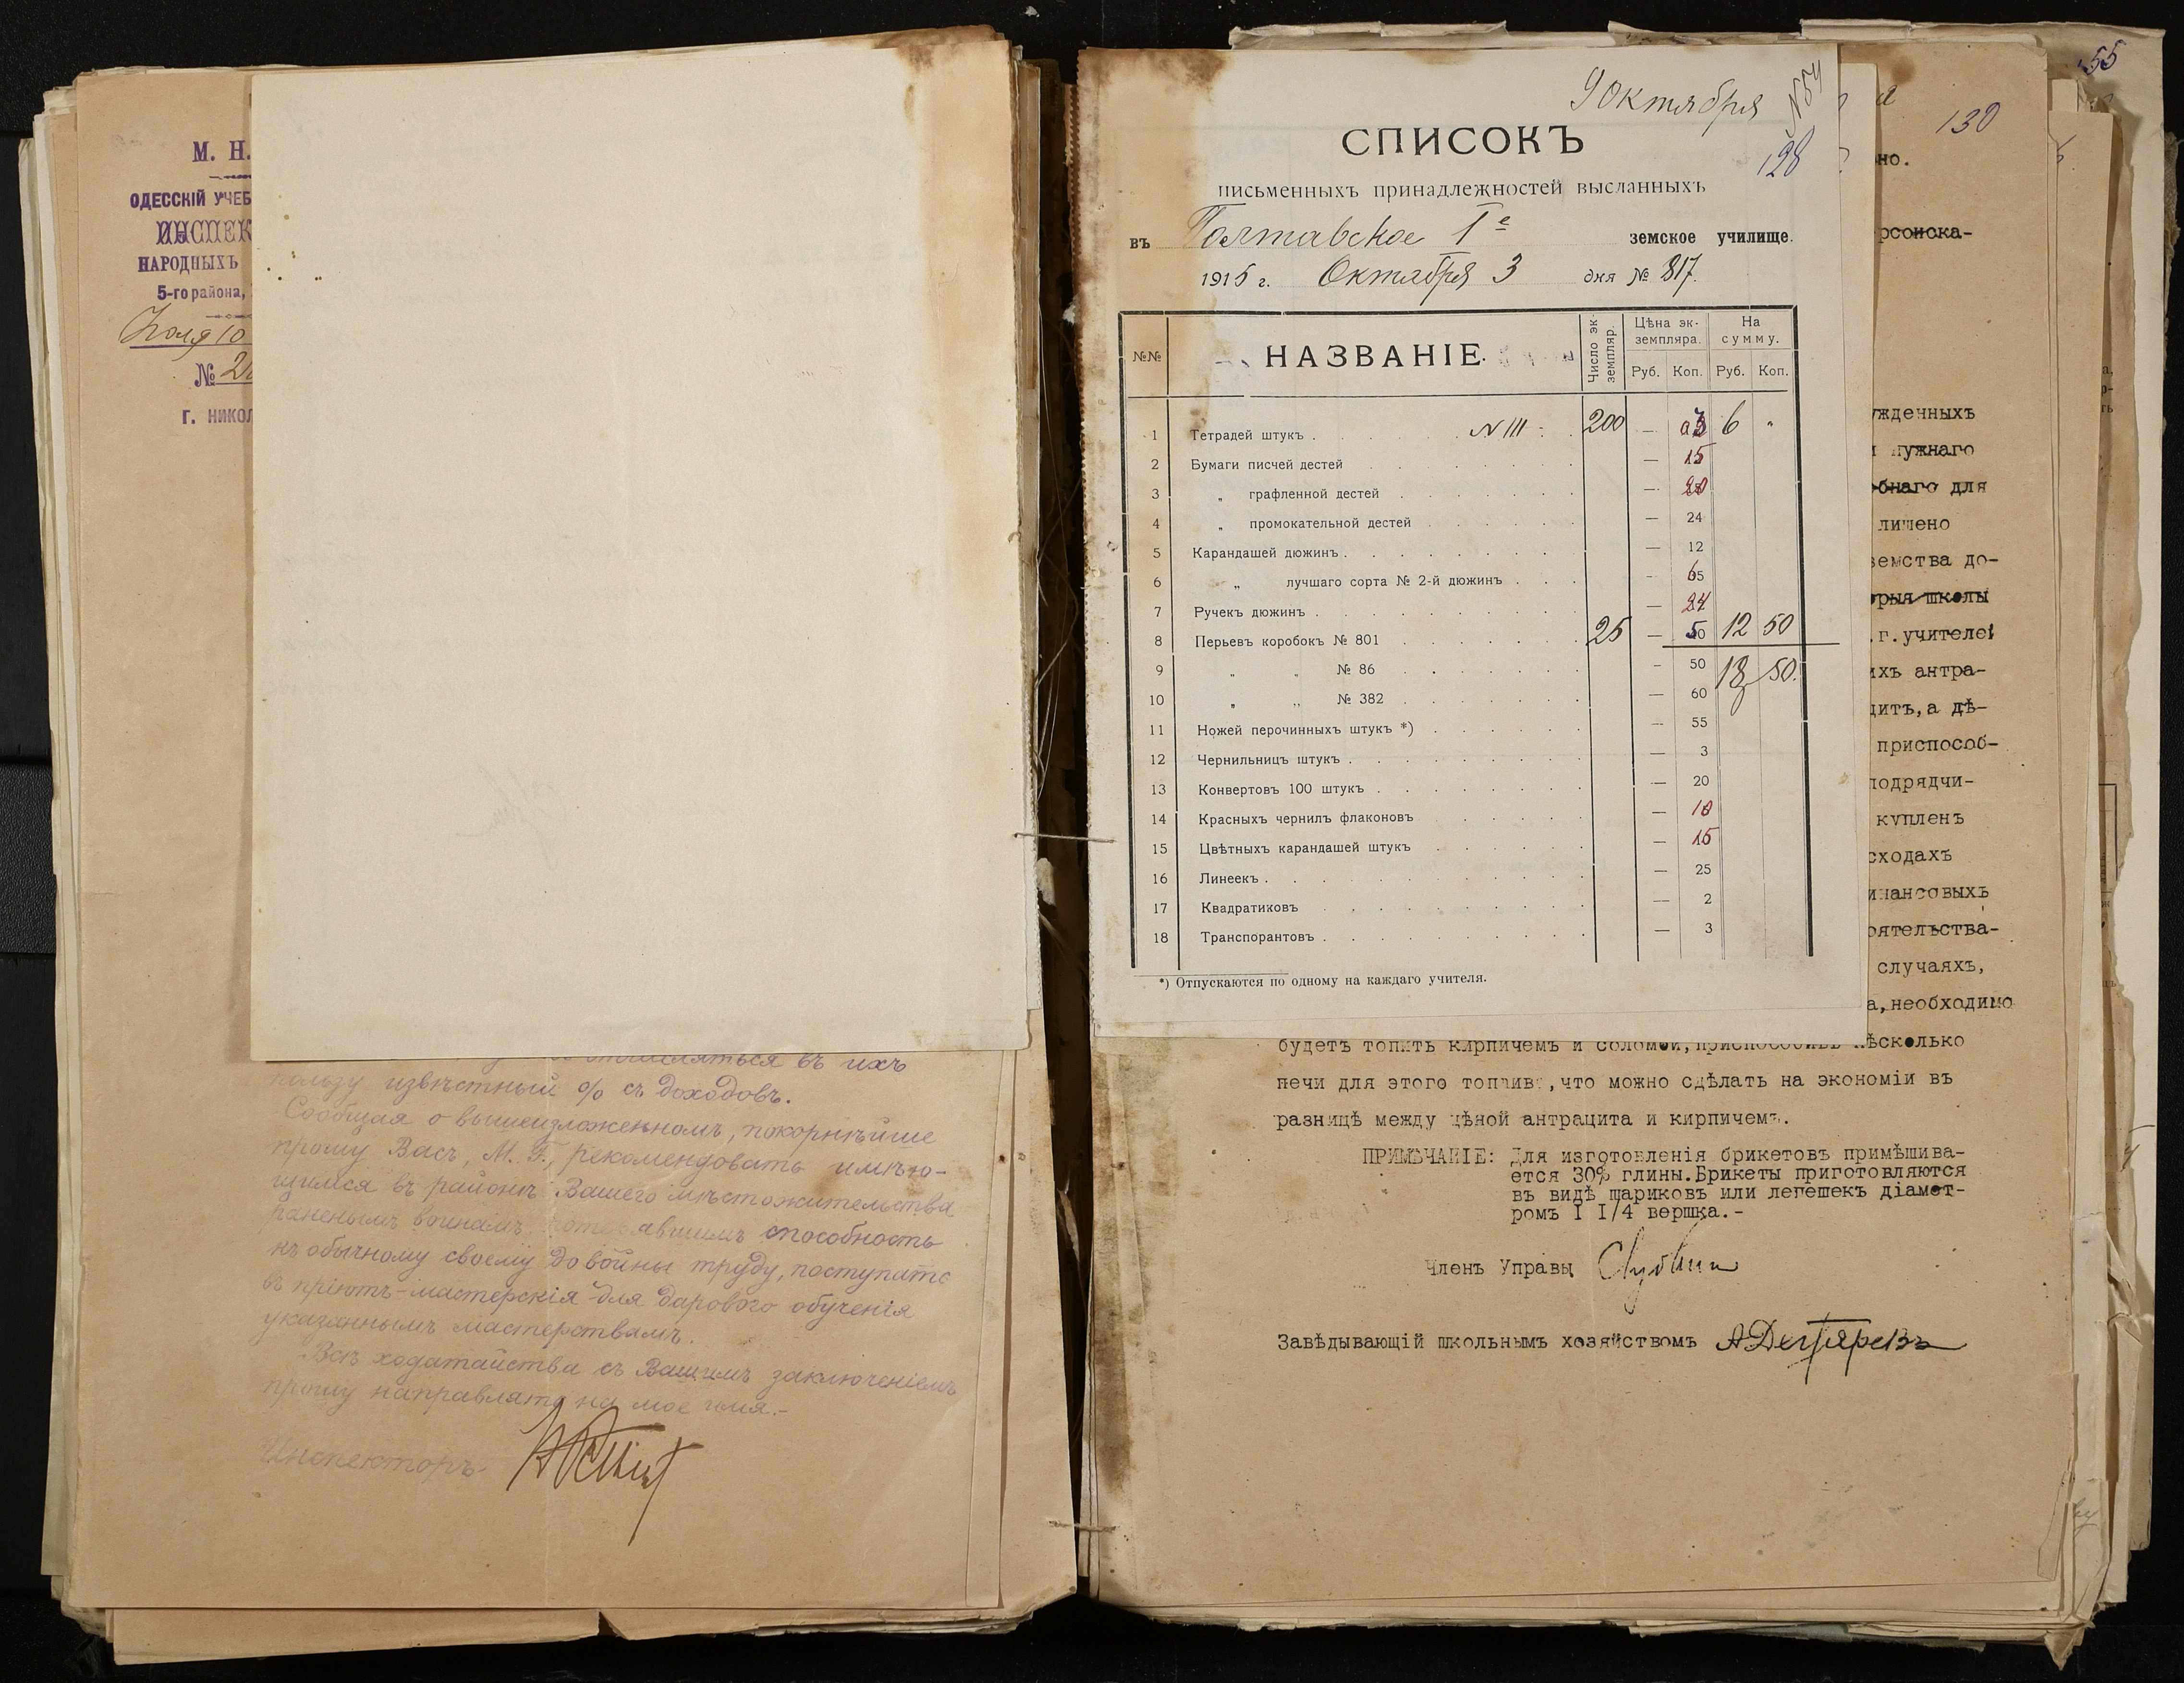 М. Н.
ОДЕССКІЙ УЧЕБ
ИНСПЕК
НАРОДНЫХЪ
5-го района,
10
№
Г. НИКОЛ
въ ихъ
пользу извѣстный % съ доходовъ.
Сообщая о вышеизложенномъ, покорнѣйше
прошу Васъ, М. Г., рекомендовать имѣю-
щимся въ районѣ Вашего мѣстожительства
раненымъ воинамъ, способность
къ обычному своему до войны труду, поступать
въ пріютъ-мастерскія для дарового обученія
указаннымъ мастерствамъ.
Всѣ ходатайства съ Вашимъ заключеніемъ
прошу направлять на мое имя.-
Инспекторъ
55
130
9 Октября
N 54
128
СПИСОКЪ
письменныхъ принадлежностей высланныхъ
въ Полтавское 1е земское училище.
1915 г. Октября 3 дня № 817.
№№ НАЗВАНІЕ. Число эк-земпляр. Цѣна эк-земпляра. На сумму.
Руб. Коп. Руб. Коп.
1 Тетрадей штукъ . N III 200 — 3 6 "
2 Бумаги писчей дестей — 15
3 „ графленной дестей — 20
4 „ промокательной дестей — 24
5 Карандашей дюжинъ — 12
6 „ лучшаго сорта № 2-й дюжинъ — 65
7 Ручекъ дюжинъ — 24
8 Перьевъ коробокъ № 801 25 — 50 12 50
9 „ „ № 86 — 50 18 50.
10 „ „ № 382 — 60
11 Ножей перочинныхъ штукъ *) — 55
12 Чернильницъ штукъ — 3
13 Конвертовъ 100 штукъ — 20
14 Красныхъ чернилъ флаконовъ — 10
15 Цвѣтныхъ карандашей штукъ — 15
16 Линеекъ — 25
17 Квадратиковъ — 2
18 Транспорантовъ — 3
*) Отпускаются по одному на каждаго учителя.
но.
рсоиска-
ужденныхъ
нужнаго
бнаго для
лишено
земства до-
орыя школы
.г.учителей
ихъ антра-
цитъ,а дѣ-
приспособ-
подрядчи-
купленъ
сходахъ
инансовыхъ
оятельства-
случаяхъ,
а,необходимо
будетъ топить кирпичемъ и соломой,приспособивъ нѣсколько
печи для этого топлива,что можно сдѣлать на экономіи въ
разницѣ между цѣной антрацита и кирпичемъ.
ПРИМѢЧАНІЕ: Для изготовленія брикетовъ примѣшива-
ется 30% глины.Брикеты приготовляются
въ видѣ шариковъ или лепешекъ діамет-
ромъ I I/4 вершка.-
Членъ Управы
Завѣдывающій школьнымъ хозяйствомъ А Дегтяревъ